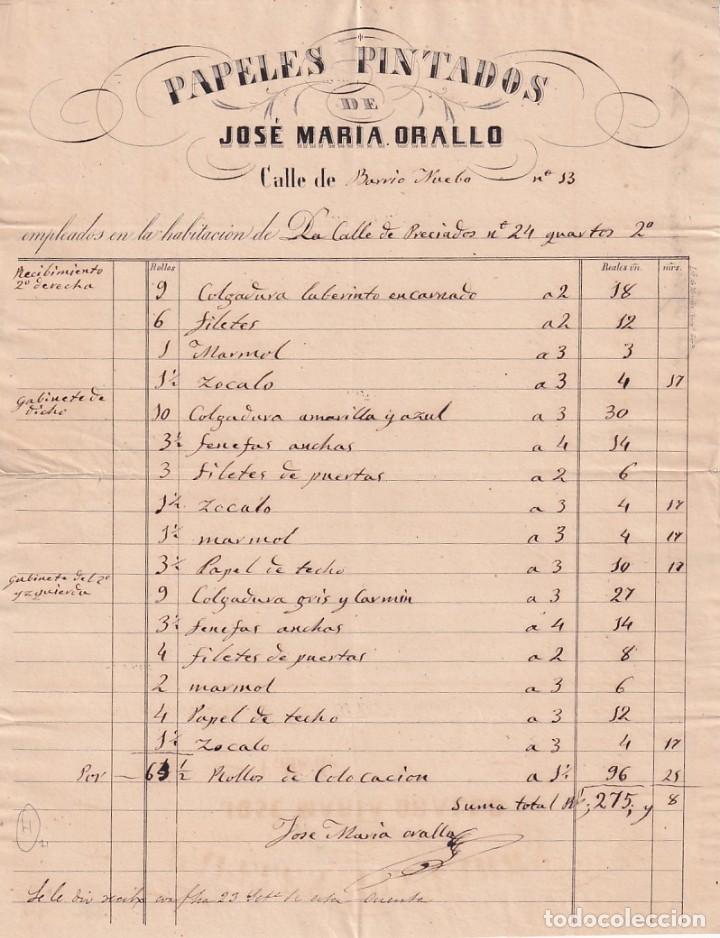 PAPELES PINTADOS
DE
JOSÉ MARIA ORALLO
Calle de Barrio Nuebo nº 13
empleados en la habitacion de La Calle de Preciados nº 24 quartos 2º
Rollos Reales vn. mrs.
Recibimiento
2º derecha
9 Colgadura laberinto encarnado a 2 18
6 filetes a 2 12
1 Marmol a 3 3
1½ Zocalo a 3 4 17
Gabinete de
dicho
10 Colgadura amarilla y azul a 3 30
3½ Senefas anchas a 4 14
3 filetes de puertas a 2 6
1½ Zocalo a 3 4 17
1½ marmol a 3 4 17
3½ Papel de techo a 3 10 17
Gabinete del 2º
yzquierda
9 Colgadura gris y Carmin a 3 27
3½ Senefas anchas a 4 14
4 filetes de puertas a 2 8
2 marmol a 3 6
4 Papel de techo a 3 12
1½ Zocalo a 3 4 17
Por 65 ½ Rollos de Colocacion a 1½ 96 25
Suma total Rˢ 275, y 8
Jose Maria orallo
H
Se le dio recibo con fha 23 Setᵉ de esta Cuenta
todocoleccion